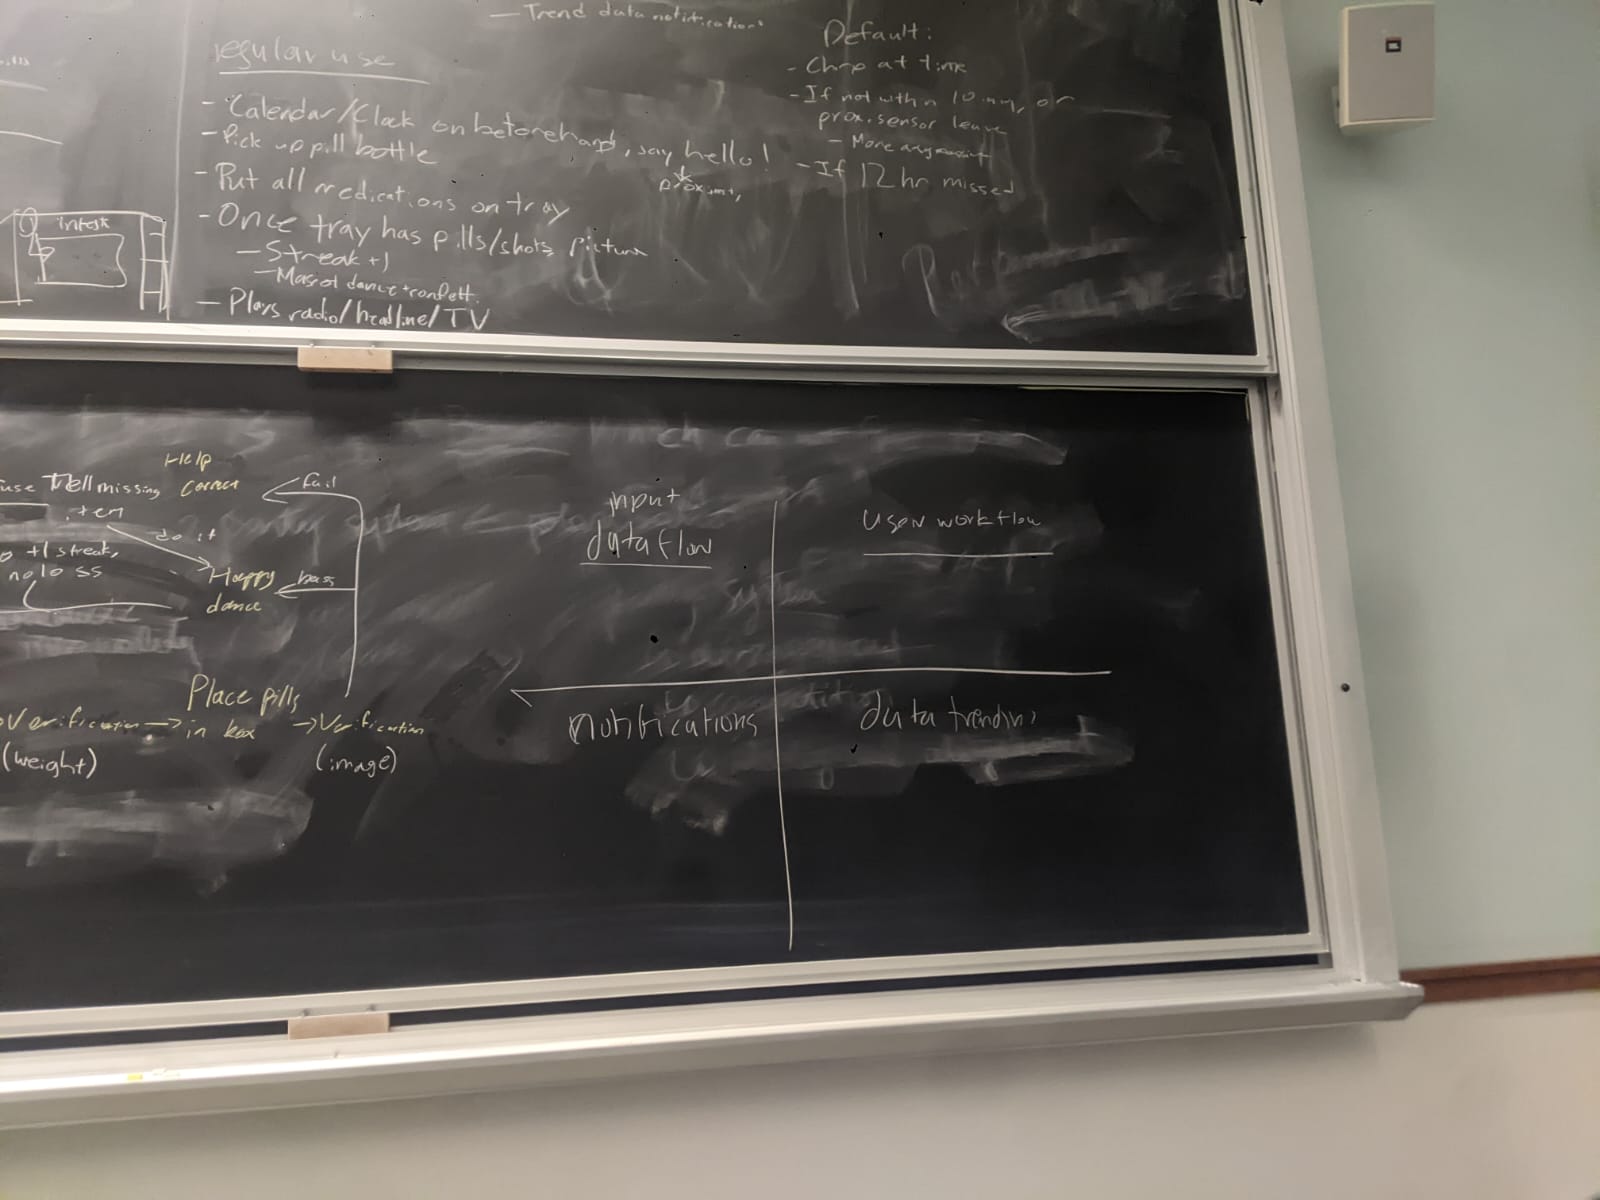 - Trend data notifications
regular use
- Calendar/Clock on beforehand, say hello!
- Pick up pill bottle
- Put all medications on tray
- Once tray has pills/shots, picture
- Streak +1
- Mascot dance + confett.
- Plays radio/headline/TV
Default:
- Chirp at time
- If not within 10 min, or
prox. sensor leave
- More
- If 12 hr missed
Tell missing
item
Help
Correct
fail
do it
+1 streak,
no loss
Happy
dance
pass
Place pills
Verification → in box → Verification
(weight)
(image)
input
data flow
User workflow
notifications
data trending